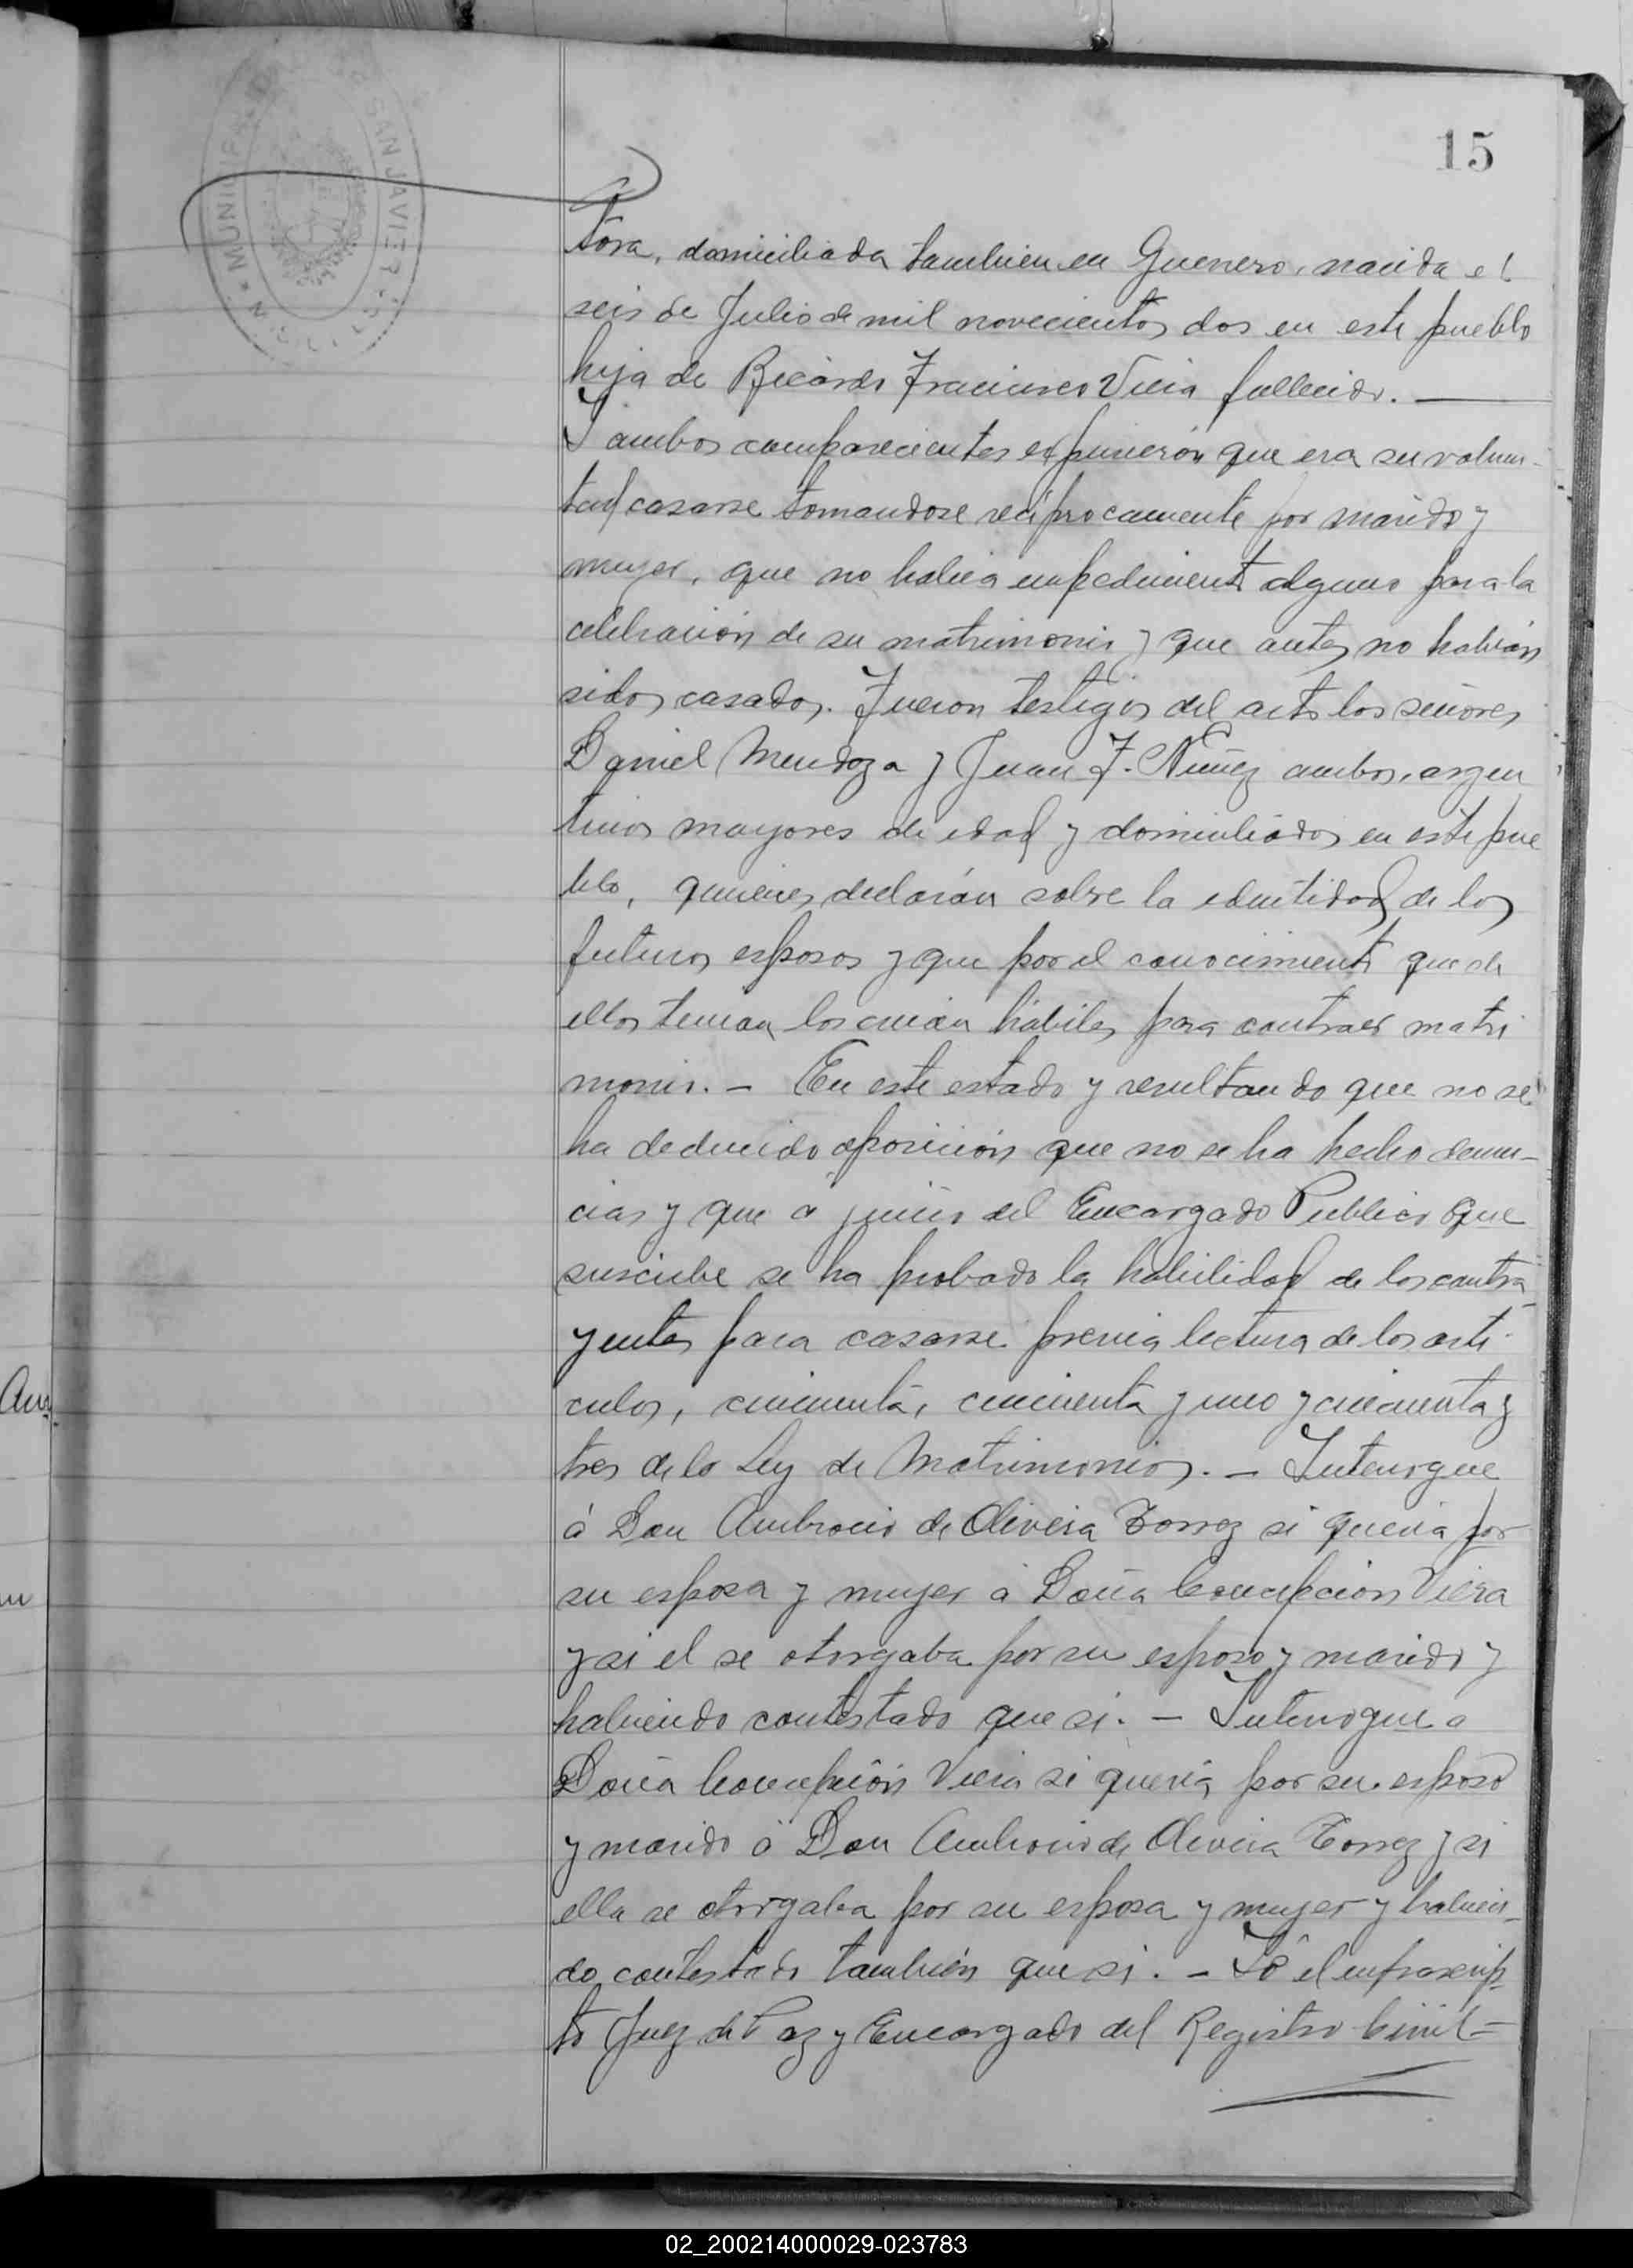 15
MUNICIPAL
SAN JAVIER
tora, domiciliada tambien en Guerrero, nacida el
seis de Julio de mil novecientos dos en este pueblo
hija de Ricardo Francisco Vieia fallecido. —
I ambos comparecientes expusierón que era su volun-
tad casarse tomandose reciprocamente por marido y
mujer, que no habia impedimento alguno para la
celebración de su matrimonio y que antes no habián
sidos casados. Fueron testigos del acto los señores
Daniel Mendoza y Juan F. Nuñez ambos, argen
tinos mayores de edad y domiciliados en este pue
blo, quienes declarán sobre la edentidad de los
futuros esposos y que por el conocimiento que de
ellos tenian los creian hábiles para contraer matri
monio. – En este estado y resultando que no se
ha deducido oposición que no se ha hecho denun-
cias y que a juicio del Encargado Publico que
suscribe se ha probado la habilidad de los contra-
yentes para casarse previa lectura de los arti-
culos, cincuenta, cincuenta y uno y cincuenta y
tres de lo Ley de Matrimonios. – Interrogue
á Don Ambrocio de Oliveira Torrez si queria por
su esposa y mujer á Doña Concepcion Viera
y si el se otorgaba por su esposo y marido y
habiendo contestado que si. – Interrogue a
Doña Concepción Vieia si queria por su esposo
y marido á Don Ambrocio de Oliveira Torrez y si
ella se otorgaba por su esposa y mujer y habien-
do contestado también que si. – Yó el infrascrip-
to Juez de Paz y Encargado del Registro Civil =
Am
02_200214000029-023783